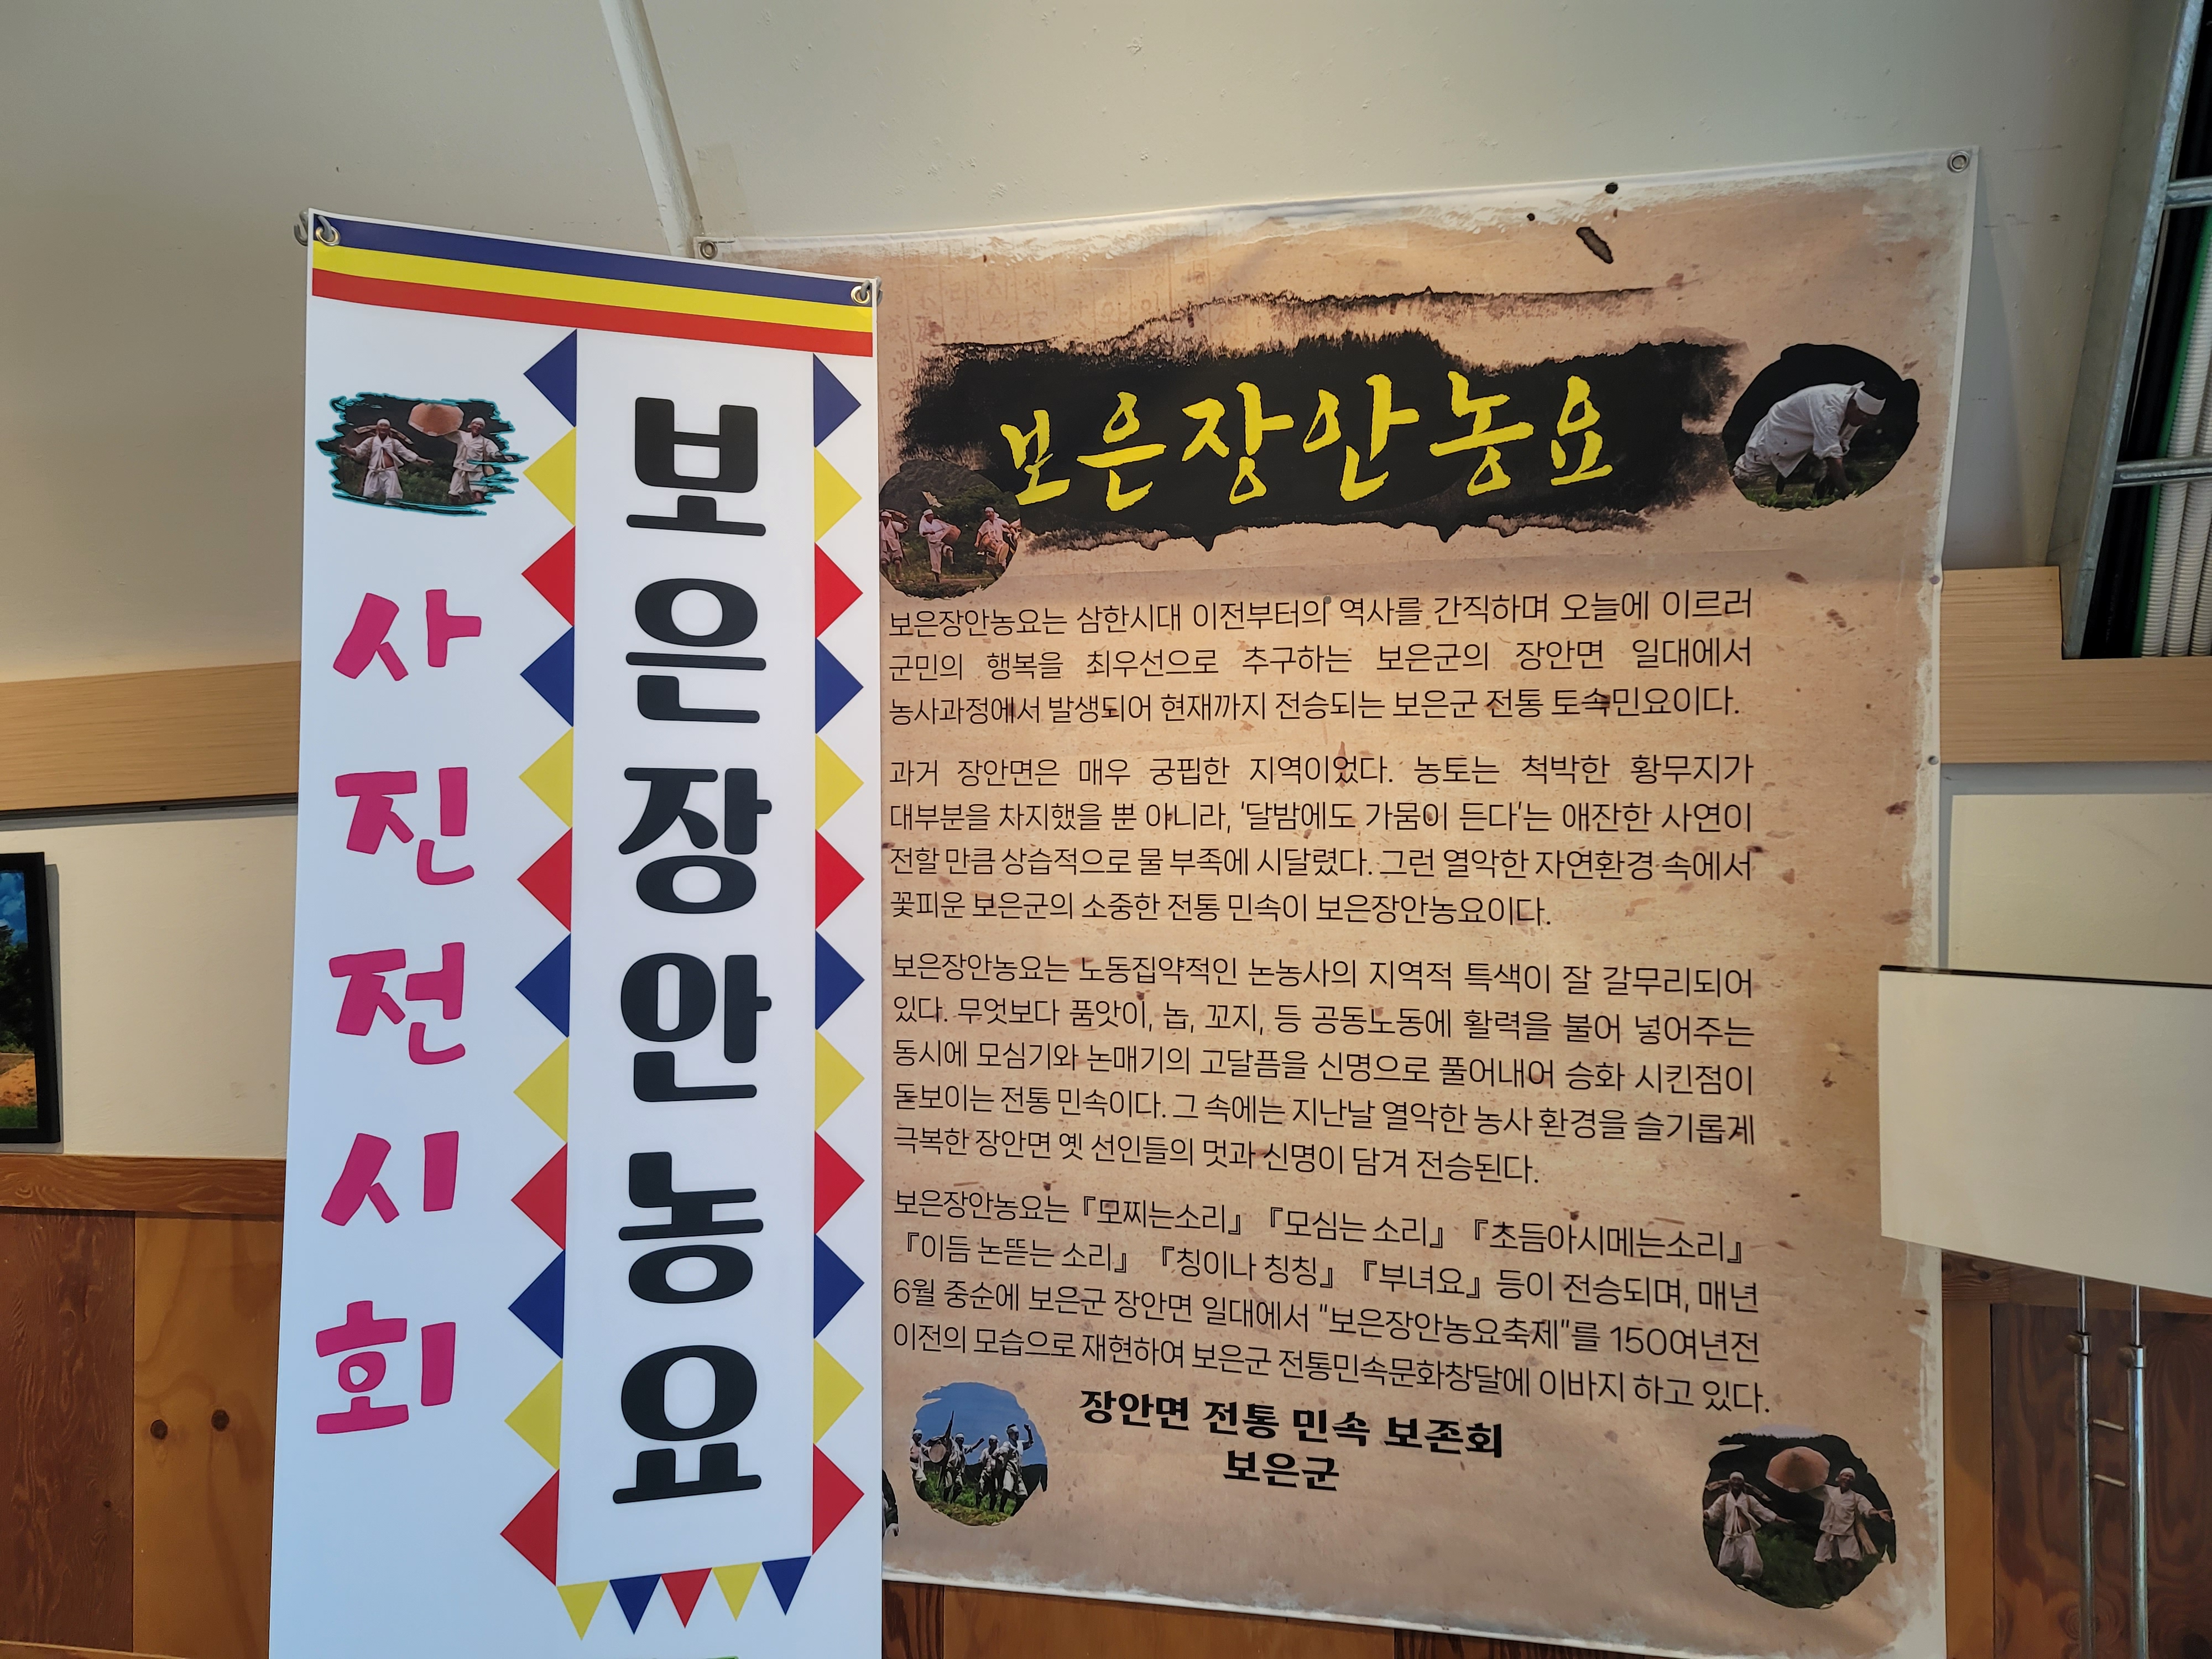 보은장안농요
사진전시회
보은장안농요
보은장안농요는 삼한시대 이전부터의 역사를 간직하며 오늘에 이르러
군민의 행복을 최우선으로 추구하는 보은군의 장안면 일대에서
농사과정에서 발생되어 현재까지 전승되는 보은군 전통 토속민요이다.
과거 장안면은 매우 궁핍한 지역이었다. 농토는 척박한 황무지가
대부분을 차지했을 뿐 아니라, '달밤에도 가뭄이 든다'는 애잔한 사연이
전할 만큼 상습적으로 물 부족에 시달렸다. 그런 열악한 자연환경 속에서
꽃피운 보은군의 소중한 전통 민속이 보은장안농요이다.
보은장안농요는 노동집약적인 논농사의 지역적 특색이 잘 갈무리되어
있다. 무엇보다 품앗이, 놉, 꼬지, 등 공동노동에 활력을 불어 넣어주는
동시에 모심기와 논매기의 고달픔을 신명으로 풀어내어 승화 시킨점이
돋보이는 전통 민속이다. 그 속에는 지난날 열악한 농사 환경을 슬기롭게
극복한 장안면 옛 선인들의 멋과 신명이 담겨 전승된다.
보은장안농요는 『모찌는소리』 『모심는 소리』 『초듬아시메는소리』
『이듬 논뜯는 소리』 『칭이나 칭칭』 『부녀요』 등이 전승되며, 매년
6월 중순에 보은군 장안면 일대에서 "보은장안농요축제"를 150여년전
이전의 모습으로 재현하여 보은군 전통민속문화창달에 이바지 하고 있다.
장안면 전통 민속 보존회
보은군